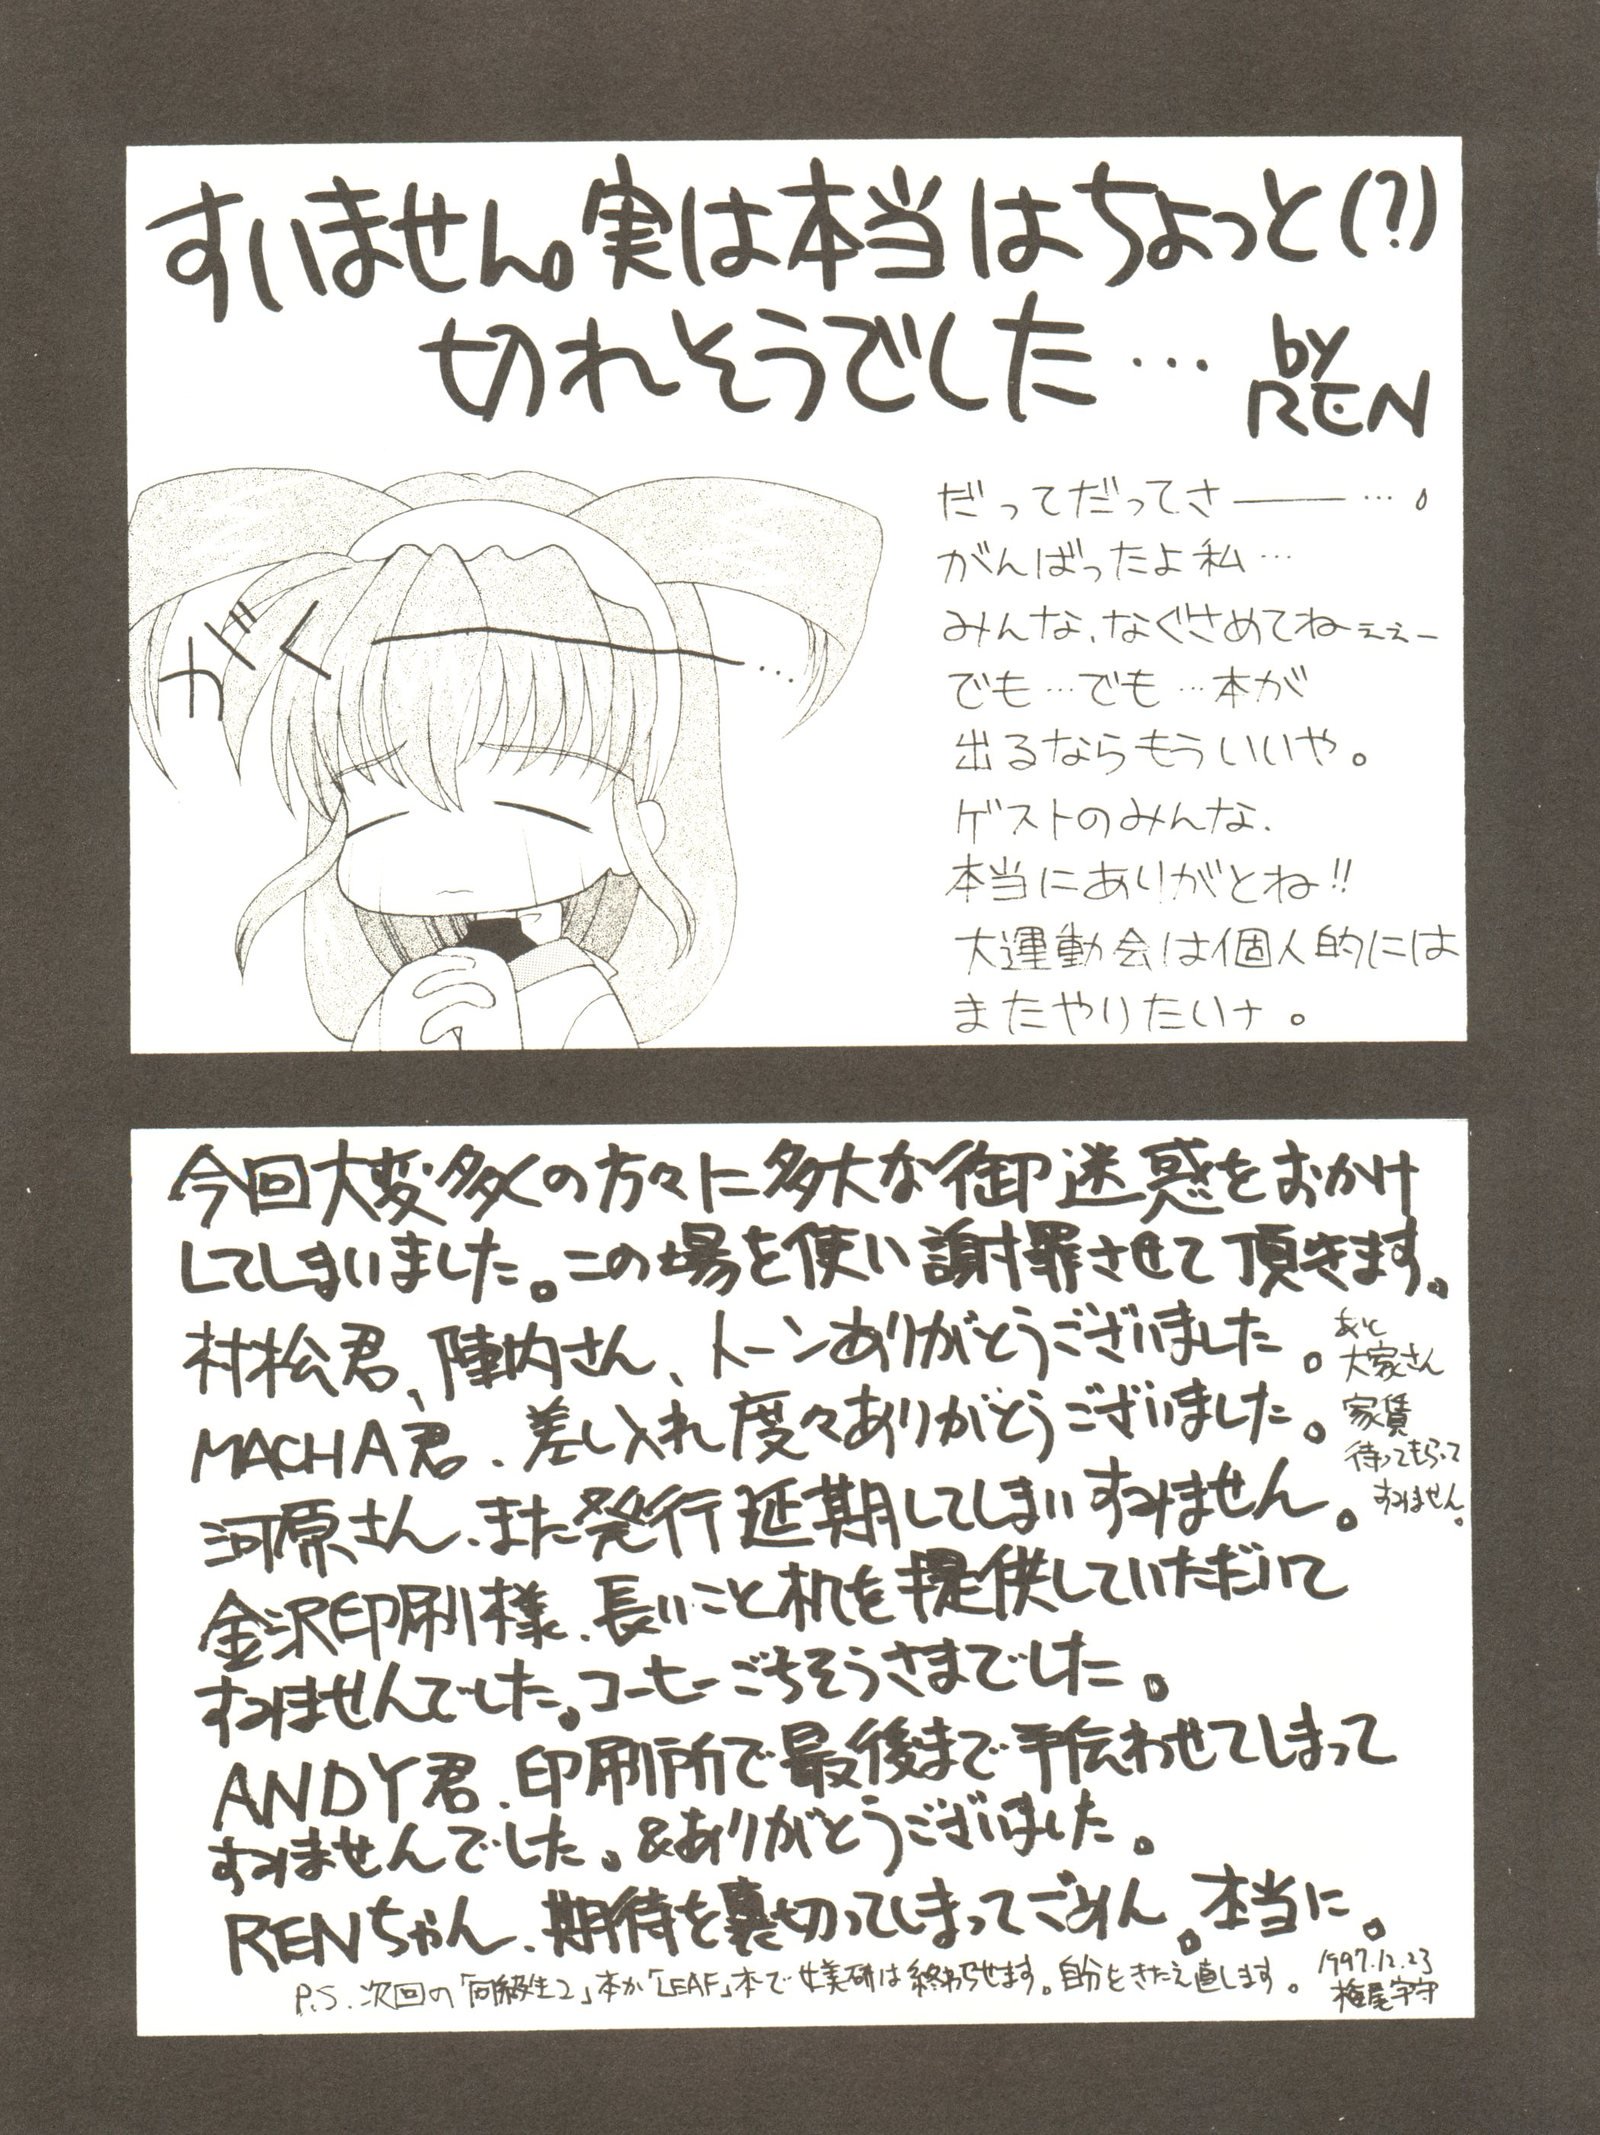 すいません。実は本当はちょっと(?)
切れそうでした…
by
REN
がく
…
だってだってさー―…。
がんばったよ私…
みんな、なぐさめてねぇぇー
でも…でも…本が
出るならもういいや。
ゲストのみんな、
本当にありがとね!!
大運動会は個人的には
またやりたいナ。
今回大変多くの方々に多大な御迷惑をおかけ
してしまいました。この場を使い謝罪させて頂きます。
村松君、陣内さん、トーンありがとうございました。
MACHA君、差し入れ度々ありがとうございました。
河原さん、また発行延期してしまいすみません。
あと
大家さん
家賃
待ってもらって
すみません。
金沢印刷様、長いこと机を提供していただいて
すみませんでした。コーヒーごちそうさまでした。
ANDY君、印刷所で最後まで手伝わせてしまって
すみませんでした。&ありがとうございました。
RENちゃん、期待を裏切ってしまってごめん。本当に。
P.S.次回の「同級生2」本か「LEAF」本で女美研は終わらせます。自分をきたえ直します。
1997.12.23
梅尾宇守